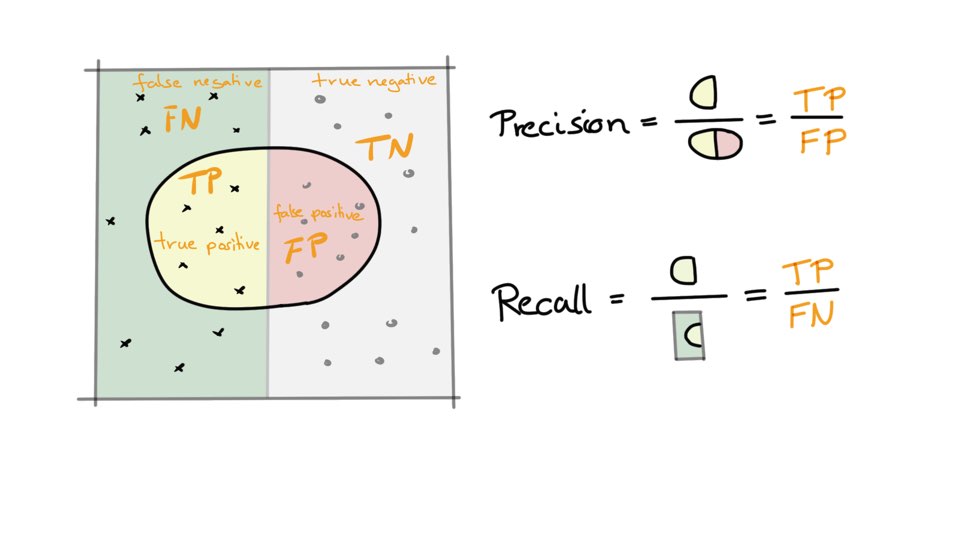 false negative
true negative
FN
TN
TP
true positive
false positive
FP
Precision = = TP
FP
Recall = = TP
FN